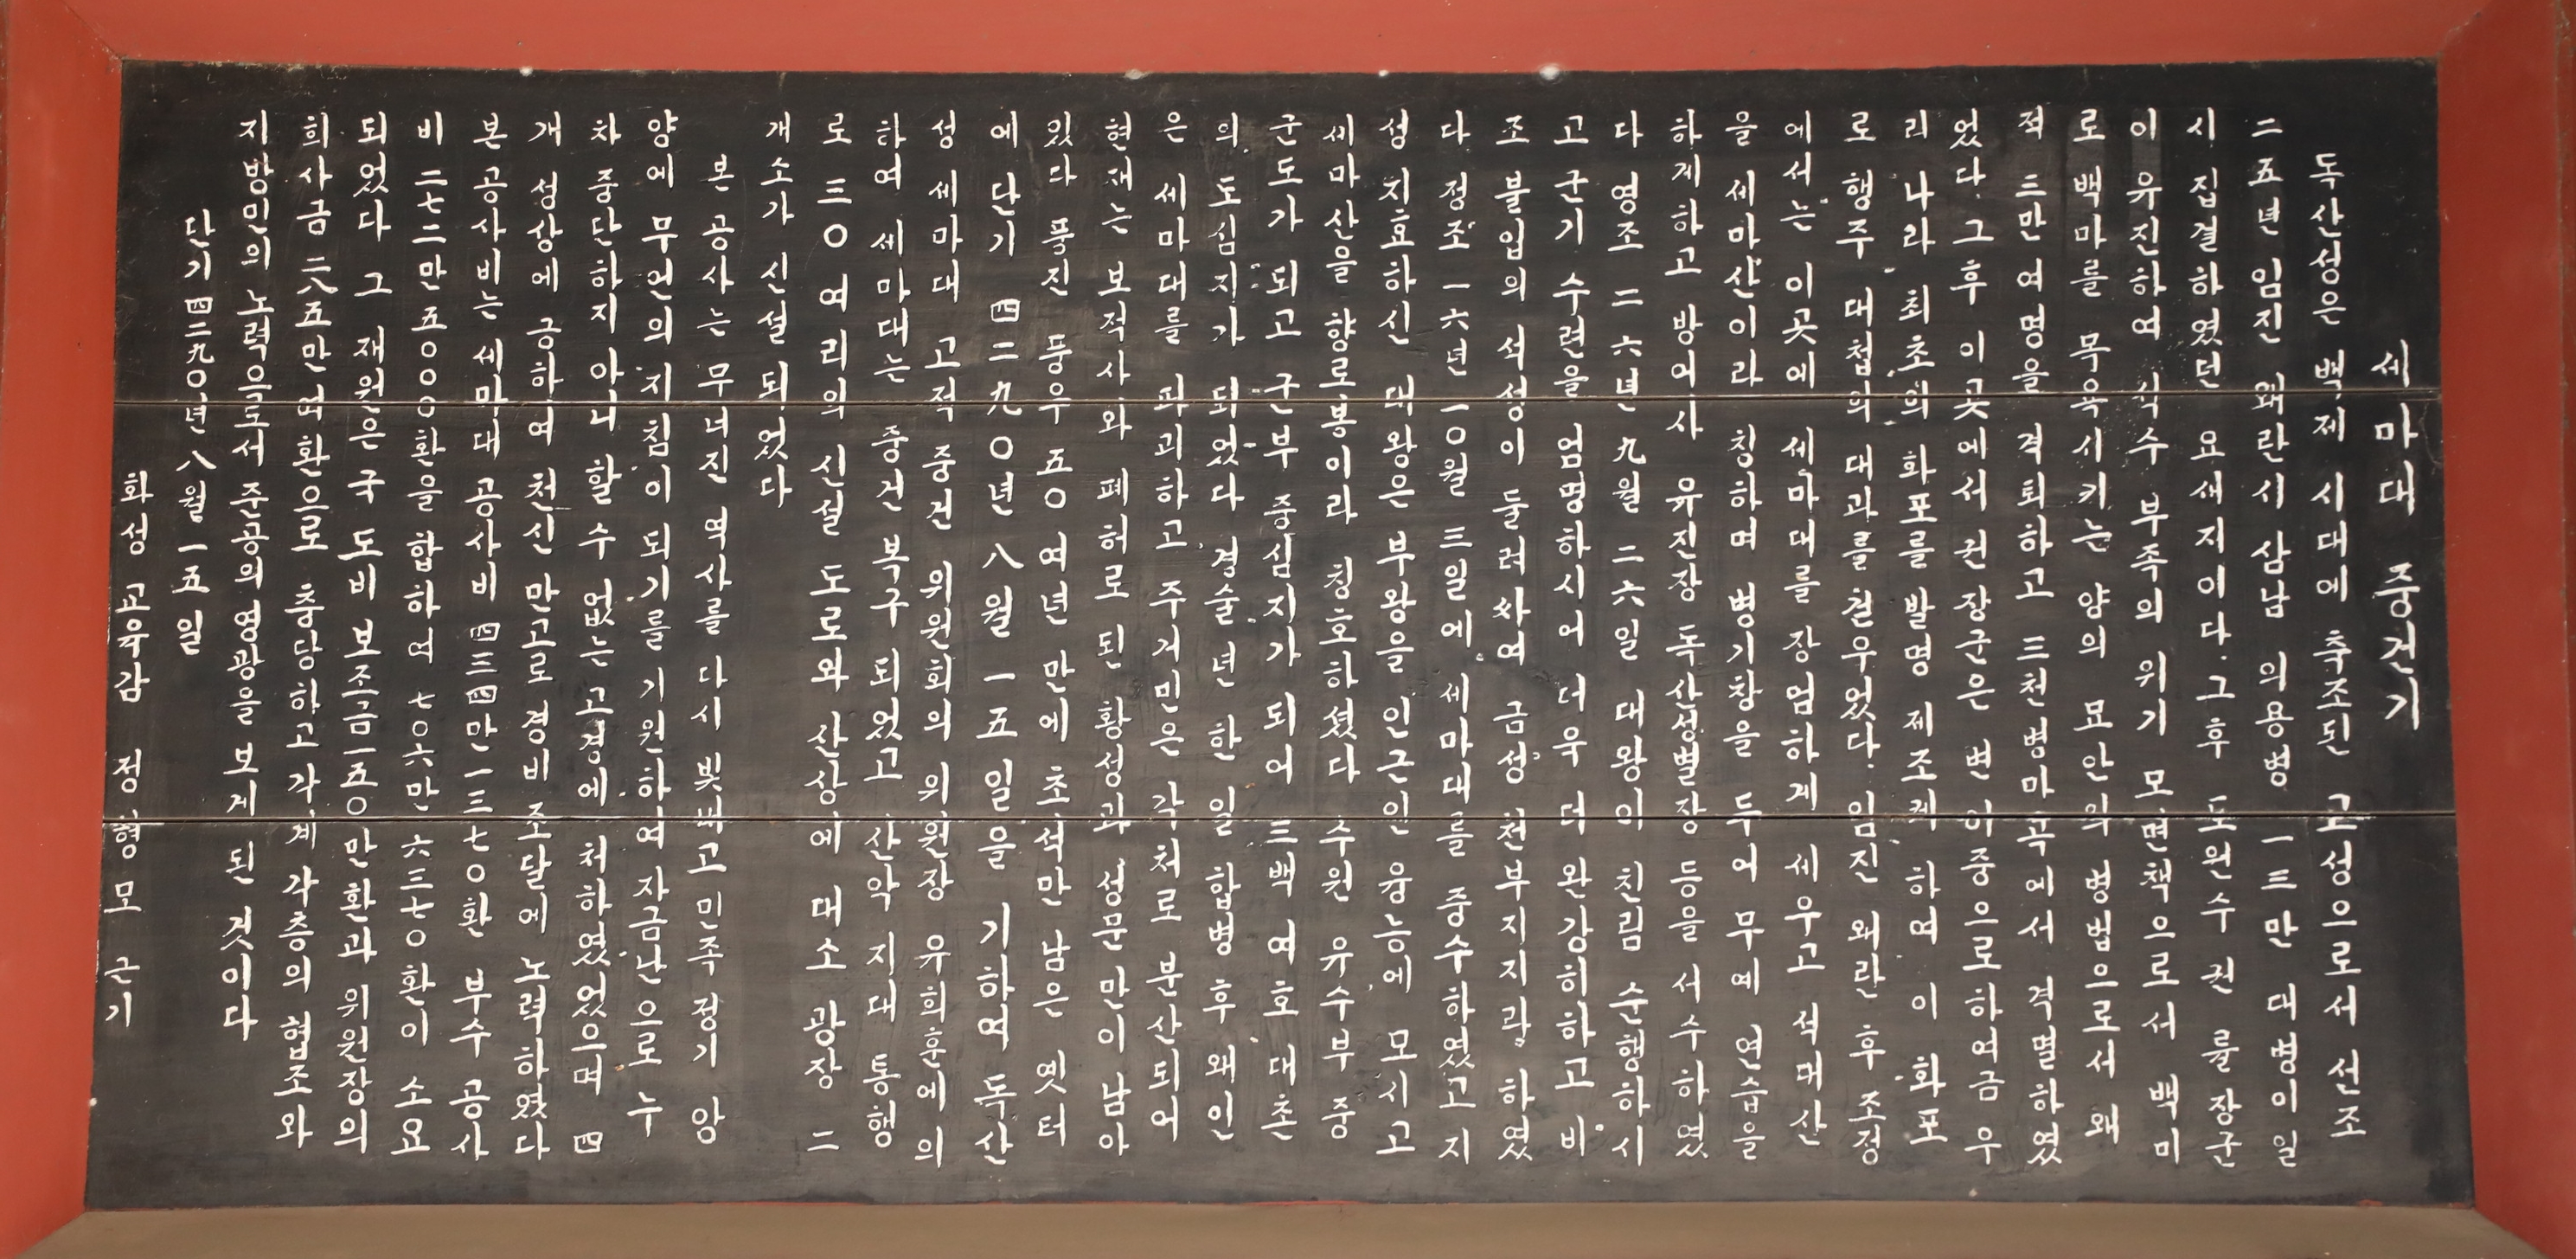 세마대 중건기
독산성은 백제 시대에 축조된 고성으로서 선조
二五년 임진 왜란시 삼남 의용병 一三만 대병이 일
시 집결하였던 요새지이다. 그후 도원수 권률장군
이 유진하여 식수 부족의 위기 모면책으로서 백미
로 백마를 목욕시키는 양의 묘안의 병법으로서 왜
적 三만여명을 격퇴하고 三천병마곡에서 격멸하였
었다. 그후 이곳에서 권장군은 변이중으로하여금 우
리 나라 최초의 화포를 발명 제조케 하여 이 화포
로 행주 대첩의 대과를 걷우었다. 임진 왜란 후 조정
에서는 이곳에 세마대를 장엄하게 세우고 석대산
을 세마산이라 칭하며 병기창을 두어 무예 연습을
하게하고 방어사 유진장 독산성별장 등을 서수하였
다 영조 二六년 九월 二六일 대왕이 친림 순행하시
고 군기 수련을 엄명하시어 더욱 더 완강히하고 비
조불입의 석성이 둘러싸여 금성 천부지지라 하였
다 정조 一六년 一〇월 三일에 세마대를 중수하였고 지
성 지효하신 대왕은 부왕을 인근인 융능에 모시고
세마산을 향로봉이라 칭호하셨다 수원 유수부 중
군도가 되고 군부 중심지가 되어 三백여호 대촌
의 도심지가 되었다 경술년 한일 합병 후 왜인
은 세마대를 파괴하고 주거민은 각처로 분산되어
현재는 보적사와 폐허로 된 황성과 성문만이 남아
있다 풍진 풍우 五〇여년 만에 초석만 남은 옛터
에 단기 四二九〇년 八월 一五일을 기하여 독산
성 세마대 고적 중건 위원회의 위원장 유희훈에의
하여 세마대는 중건 복구 되었고 산악 지대 통행
로 三〇여리의 신설 도로와 산상에 대소 광장 二
개소가 신설되었다
본 공사는 무너진 역사를 다시 빛내고 민족 정기 앙
양에 무언의 지침이 되기를 기원하여 자금난으로 누
차 중단하지 아니 할 수 없는 고경에 처하였었으며 四
개 성상에 긍하여 천신 만고로 경비 조달에 노력하였다
본 공사비는 세마대 공사비 四三四만一三七〇환 부수 공사
비 二七二만五〇〇〇환을 합하여 七〇六만六三七〇환이 소요
되었다 그 재원은 국 도비 보조금 一五〇만환과 위원장의
희사금 二八五만여환으로 충당하고 각계 각층의 협조와
지방민의 노력으로서 준공의 영광을 보게 된 것이다
단기 四二九〇년 八월 一五일
화성 교육감 정형모 근기